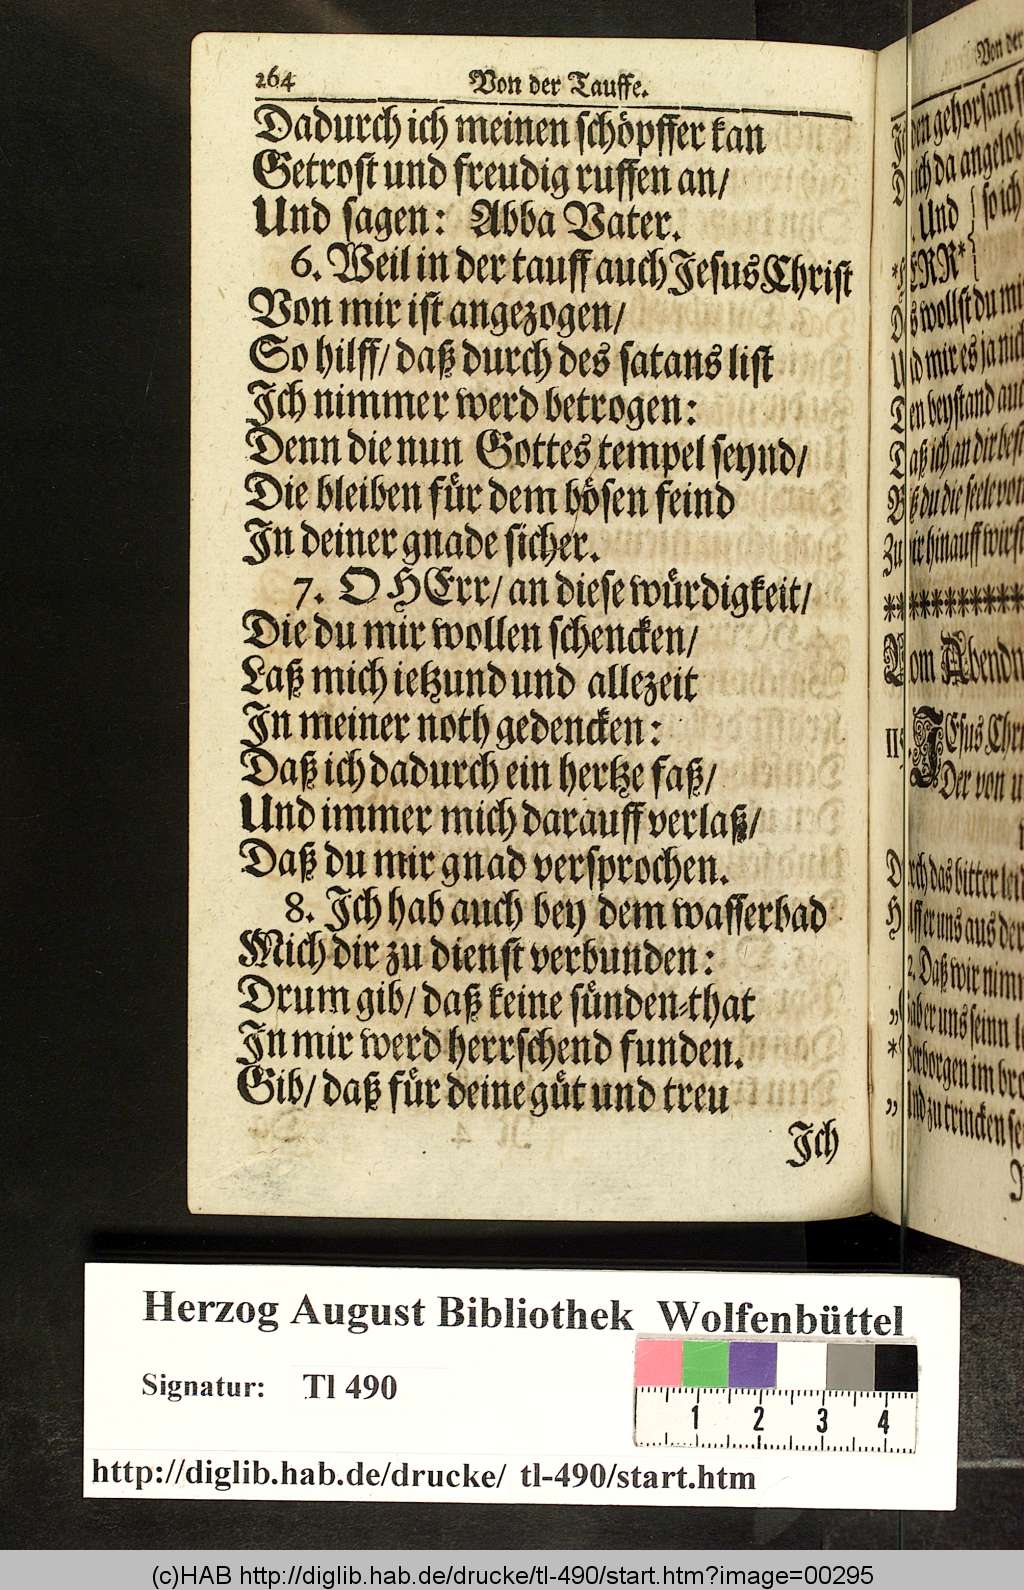 264 Von der Tauffe.
Dadurch ich meinen schöpffer kan
Getrost und freudig ruffen an/
Und sagen: Abba Vater.
6. Weil in der tauff auch Jesus Christ
Von mir ist angezogen/
So hilff/ daß durch des satans list
Ich nimmer werd betrogen:
Denn die nun Gottes tempel seynd/
Die bleiben für dem bösen feind
In deiner gnade sicher.
7. O HErr/ an diese würdigkeit/
Die du mir wollen schencken/
Laß mich ietzund und allezeit
In meiner noth gedencken:
Daß ich dadurch ein hertze faß/
Und immer mich darauff verlaß/
Daß du mir gnad versprochen.
8. Ich hab auch bey dem wasserbad
Mich dir zu dienst verbunden:
Drum gib/ daß keine sünden-that
In mir werd herrschend funden.
Gib/ daß für deine güt und treu
Ich
Von der
gehorsam
da angelob
Und so ich
wollst du
mir es ja nich
beystand auc
aß ich an dir
du die seele von
hinauff wirst
Vom Abendm
JEsus Chri
Der von u
das bitter leid
uns aus der
2. Daß wir nimm
er uns seinn
im bro
zu trincken
Herzog August Bibliothek Wolfenbüttel
Signatur: Tl 490
1 2 3 4
http://diglib.hab.de/drucke/ tl-490/start.htm
(c)HAB http://diglib.hab.de/drucke/tl-490/start.htm?image=00295